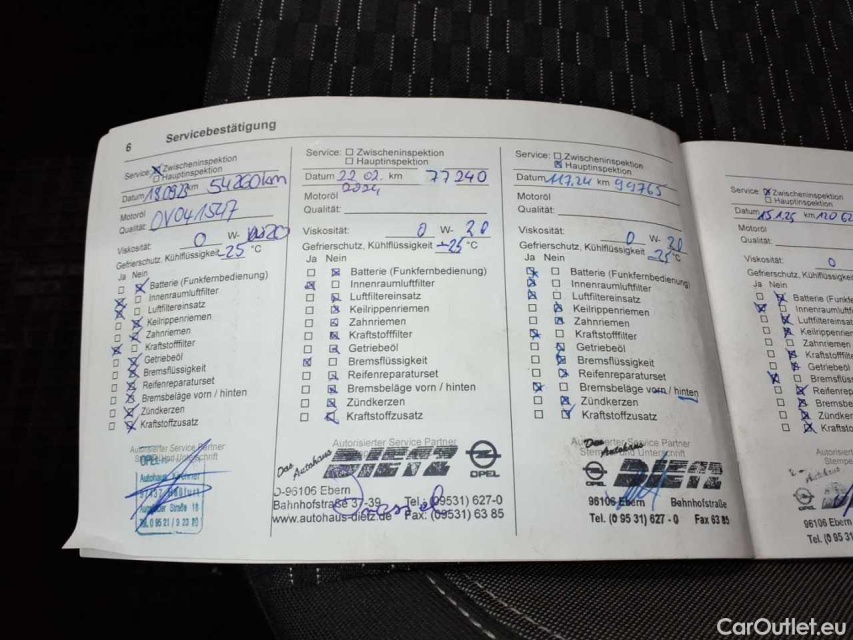 6 Servicebestätigung
Service: Zwischeninspektion
Hauptinspektion
Datum 18.09.23 km 54260km
Motoröl OV041547
Qualität:
Viskosität: 0 W-
Gefrierschutz, Kühlflüssigkeit -25 °C
Ja Nein
Batterie (Funkfernbedienung)
Innenraumluftfilter
Luftfiltereinsatz
Keilrippenriemen
Zahnriemen
Kraftstofffilter
Getriebeöl
Bremsflüssigkeit
Reifenreparaturset
Bremsbeläge vorn / hinten
Zündkerzen
Kraftstoffzusatz
Autorisierter Service Partner
Stempel und Unterschrift
OPEL
Autohaus
Service: Zwischeninspektion
Hauptinspektion
Datum 22 02. km 77240
2024
Motoröl
Qualität:
Viskosität: 0 W- 20
Gefrierschutz, Kühlflüssigkeit -25 °C
Ja Nein
Batterie (Funkfernbedienung)
Innenraumluftfilter
Luftfiltereinsatz
Keilrippenriemen
Zahnriemen
Kraftstofffilter
Getriebeöl
Bremsflüssigkeit
Reifenreparaturset
Bremsbeläge vorn / hinten
Zündkerzen
Kraftstoffzusatz
Autorisierter Service Partner
Das Autohaus DIETZ OPEL
D-96106 Ebern
Bahnhofstraße 37-39 Tel.: (09531) 627-0
www.autohaus-dietz.de Fax: (09531) 63 85
Service: Zwischeninspektion
Hauptinspektion
Datum 11.7.24 km 99765
Motoröl
Qualität:
Viskosität: 0 W- 20
Gefrierschutz, Kühlflüssigkeit -25 °C
Ja Nein
Batterie (Funkfernbedienung)
Innenraumluftfilter
Luftfiltereinsatz
Keilrippenriemen
Zahnriemen
Kraftstofffilter
Getriebeöl
Bremsflüssigkeit
Reifenreparaturset
Bremsbeläge vorn / hinten
Zündkerzen
Kraftstoffzusatz
Autorisierter Service Partner
Stempel und Unterschrift
Das Autohaus DIETZ OPEL
96106 Ebern Bahnhofstraße
Tel. (0 95 31) 627 - 0 Fax 63 85
Service: Zwischeninspektion
Hauptinspektion
Datum 15.1.25 km
Motoröl
Qualität:
Viskosität: 0
Gefrierschutz, Kühlflüssig
Ja Nein
Batterie (Funkfe
Innenraumluftf
Luftfiltereinsat
Keilrippenriem
Zahnriemen
Kraftstofffilt
Getriebeöl
Bremsflüss
Reifenrepa
Bremsbe
Zündker
Kraftsto
Autorisiert
Stempe
Autohaus
OPEL
96106 Eber
Tel. (0 95 31
CarOutlet.eu